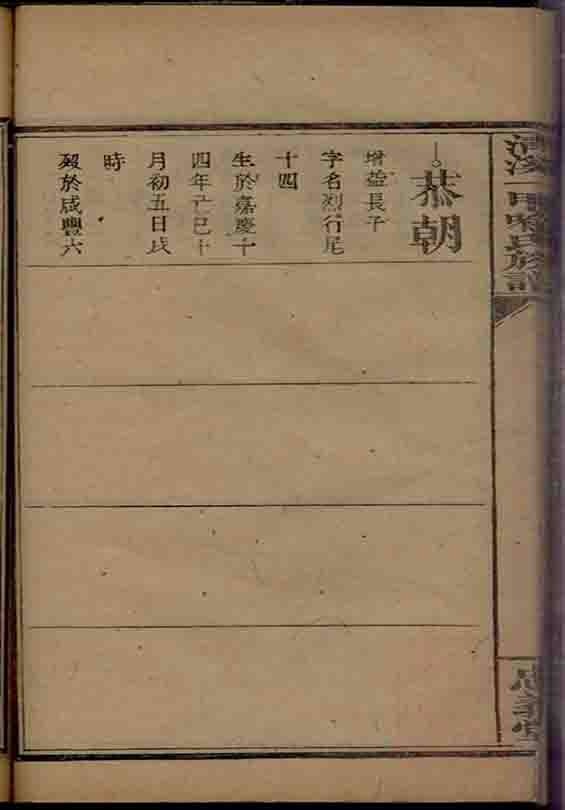 一甲 氏族譜
義堂
恭朝
增益長子
字名烈行尾
十四
生於嘉慶十
四年己巳十
月初五日戌
時
歿於咸豐六